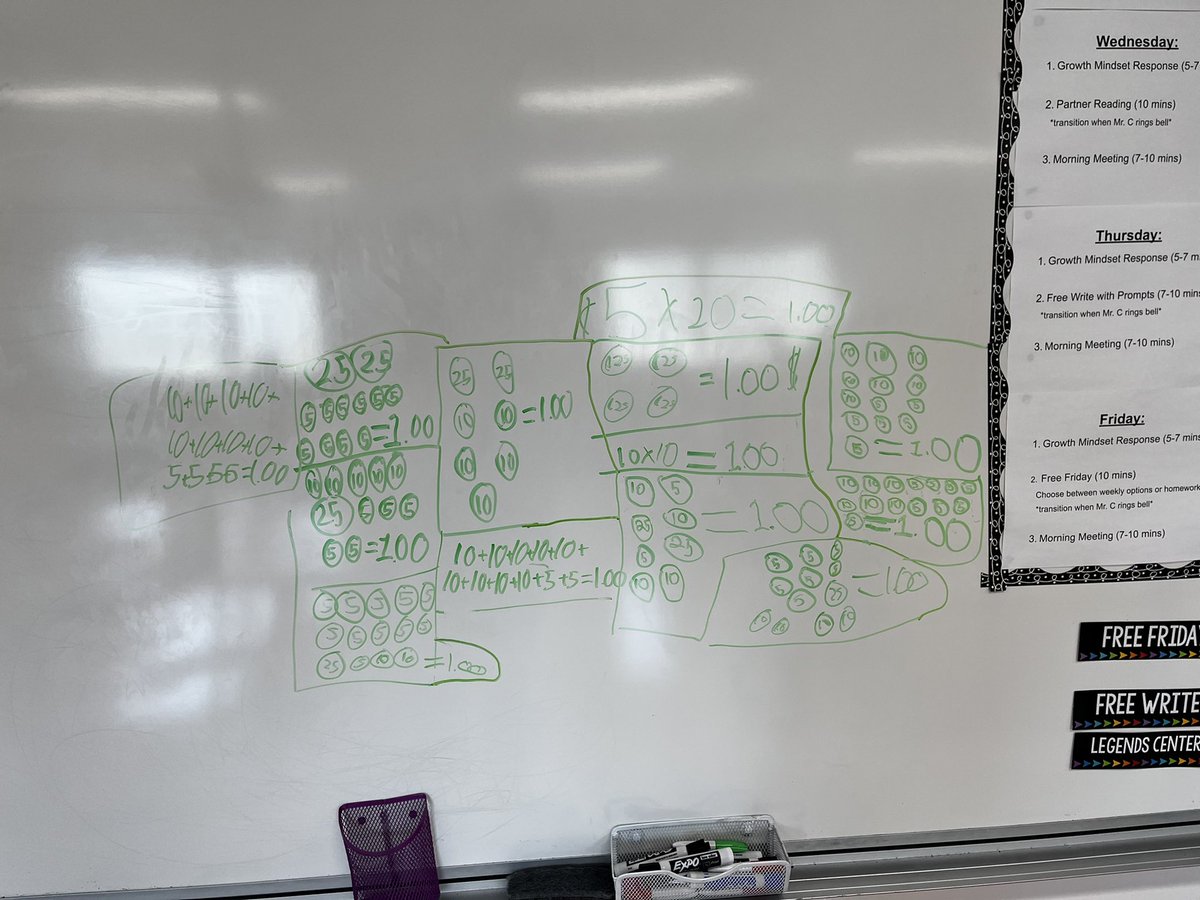 5 x 20 = 1.00
10+10+10+10+
10+10+10+10+
5+5+5+5=1.00
25 25
5 5 5 5 5
5 5 5 5 =1.00
10 10 10 10 10
25 5 5 5
5 5 =1.00
5 5 5 5 5
5 5 5 5 5
25 5 10 10 =1.00
25 25
10 10 =1.00
10 10
10
10+10+10+10+10+
10+10+10+10+5+5=1.00
25 25
25 25
=1.00 $
10x10=1.00
10 5
25 10 =1.00
5 25
10 10
5 5 5
5 5 5
5 25 =1.00
10 10 10 10
10 10 10
10 10 10
10 5 5
5 =1.00
10 10 10 5 5 5 5
10 10 10 5 5 5
5 =1.00
Wednesday:
1. Growth Mindset Response (5-7
2. Partner Reading (10 mins)
*transition when Mr. C rings bell*
3. Morning Meeting (7-10 mins)
Thursday:
1. Growth Mindset Response (5-7 m
2. Free Write with Prompts (7-10 mins
*transition when Mr. C rings bell*
3. Morning Meeting (7-10 mins)
Friday:
1. Growth Mindset Response (5-7 mins
2. Free Friday (10 mins)
Choose between weekly options or homework
*transition when Mr. C rings bell*
3. Morning Meeting (7-10 mins)
FREE FRIDA
FREE WRITE
LEGENDS CENTER
EXPO